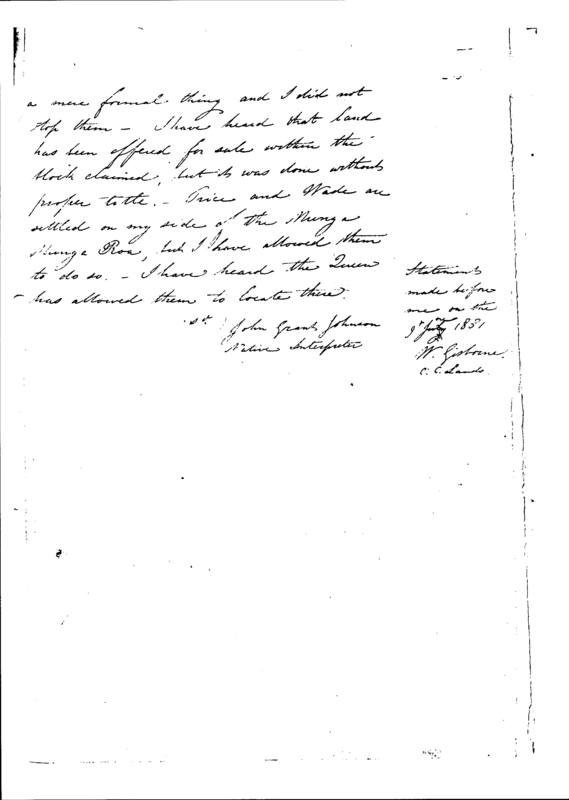 a mere formal thing and I did not
stop them – I have heard that land
has been offered for sale within the
block claimed, but it was done without
proper title. – Trice and Wade are
settled on my side of the Munga
Munga Roa, but I have allowed them
to do so. – I have heard the Queen
has allowed them to locate there.
John Grant Johnson
Native Interpreter
Statement
made before
me on the
1851
W. Gisborne.
C. C. Lands.